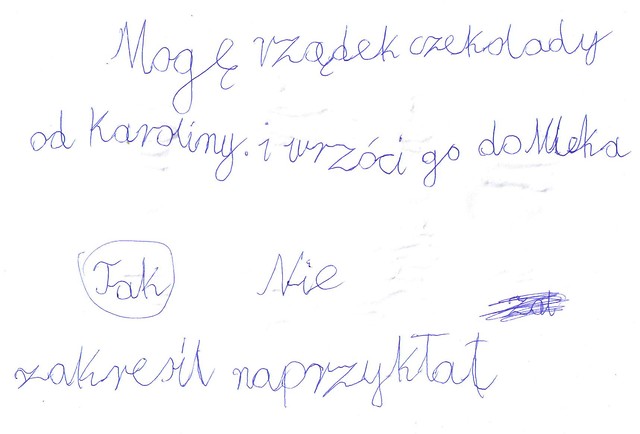 Mogę rządek czekolady
od Karoliny. i wrzóci go do Mleka
Tak Nie
zakreśil naprzykłat